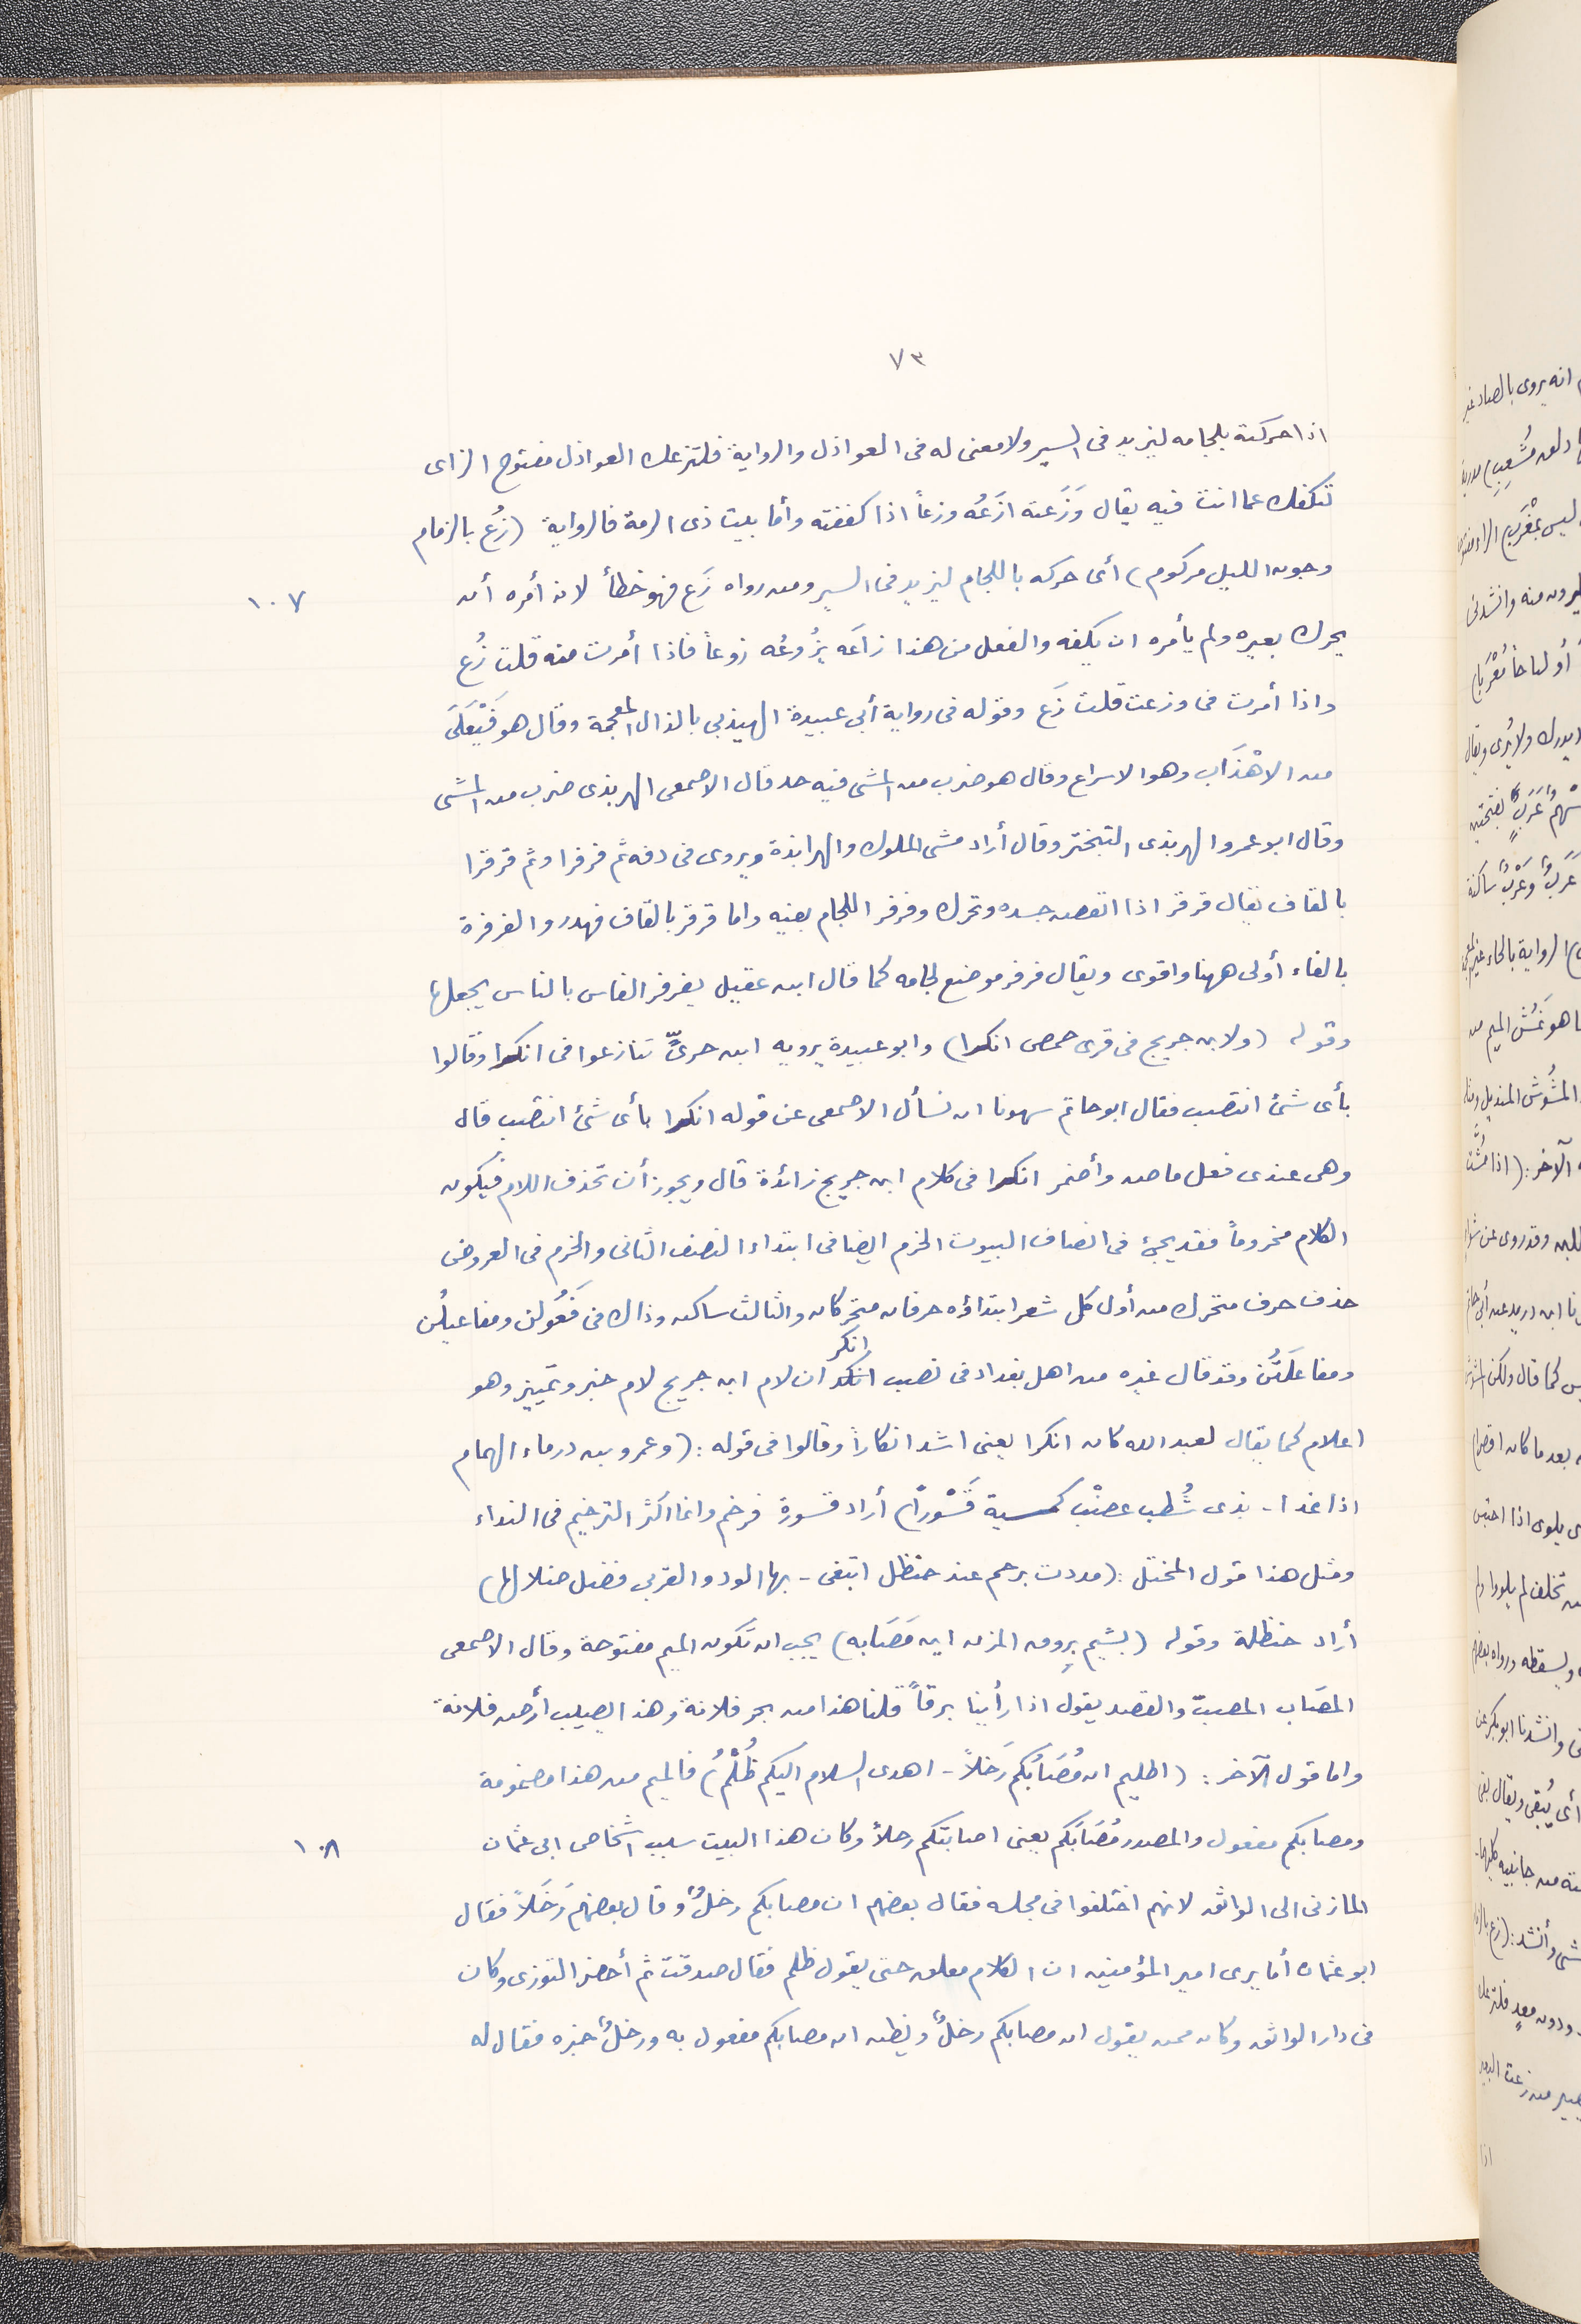 ٧٣
اذا حركته بلجامه ليزيد فى السير ولا معنى له فى العواذل والرواية فلتزعك العواذل مفتوح الزاى
لتكفك عما انت فيه يقال وَزَعته ازَعُه وزعاً اذا كففته وأما بيت ذى الرمة فالرواية (زُع بالزمام
وجوب الليل مركوم) أى حركه باللجام ليزيد فى السير ومن رواه زَع فهو خطأ لانه أمره أن
١٠٧
يحرك بعيره ولم يأمره ان يكفه والفعل من هذا زاعَه يَزُوعُه زوعاً فاذا أمرت منه قلت زُع
واذا أمرت فى وزعت قلت زَع وقوله فى رواية أبى عبيدة الهيذبى بالذال المعجمة وقال هو فَيْعَلَى
من الاهْذَاب وهو الاسراع وقال هو ضرب من المشى فيه حد قال الاصمعى الهربذى ضرب من المشى
وقال ابو عمرو الهربذى التبختر وقال أراد مشى الملوك والهرابذة ويروى فى دفه ثم فرفرا وثم قرقرا
بالقاف يقال قرقر اذا انتفض جسده وتحرك وفرفر اللجام بفيه واما قرقر بالقاف فهدر والفرفرة
بالفاء أولى ههنا واقوى ويقال فرفر موضع لجامه كما قال ابن عقيل يفرفر الفاس بالناس يجعلها
وقوله (ولابن جريج فى قرى حمص انكرا) وابو عبيدة يرويه ابن حرىٍّ تنازعوا فى انكرا وقالوا
بأى شئ انتصب فقال ابو حاتم سهونا ان نسأل الاصمعى عن قوله انكرا بأى شئ انتصب قال
وهى عندى فعل ماض وأضمر انكرا فى كلام ابن جريج زائدة قال ويجوز أن تحذف اللام فيكون
الكلام مخروماً فقد يجئ فى انصاف البيوت الخرم ايضا فى ابتداء النصف الثانى والخرم فى العروض
حذف حرف متحرك من أول كل شعر ابتداؤه حرفان متحركان والثالث ساكن وذلك فى فَعُولن ومفاعيلُن
ومفاعلَتُن وقد قال غيره من اهل بغداد فى نصب انكر ان لام ابن جريج لام خبر وتمييز وهو
اعلام كما يقال لعبد الله كان انكرا يعنى اشد انكاراً وقالوا فى قوله: (وعمرو بن درماء الهمام
اذا غدا - بذى شُطب عضْب كمشية قَسْورَا) أراد قسورة فرخم وانما اكثر الترخيم فى النداء
ومثل هذا قول المخبّل: (مددت برحم عند حنظل ابتغى - بها الود والقربى فضل ضلالها)
أراد حنظلة وقوله (بشيم برِوق المزن اين مَصَابه) يجب ان تكون الميم مفتوحة وقال الاصمعى
المصَاب المصبّ والقصد يقول اذا رأينا برقاً قلنا هذا من بحر فلانة وهذا يصيب أرض فلانة
واما قول الآخر: (اظليم ان مُصَابُكم رَجُلاً - اهدى السلام اليكم ظُلْمُ) فالميم من هذا مضمومة
ومصابكم مفعول والمصدر مُصَابَكم يعنى اصابتكم رجلاً وكان هذا البيت سبب اشخاص ابى عثمان
١٠٨
المازنى الى الواثق لانهم اختلفوا فى مجلسه فقال بعضهم ان مصابكم رجلٌ وقال بعضهم رَجُلاً فقال
ابو عثمان أما يرى امير المؤمنين ان الكلام معلق حتى يقول ظلم فقال صدقت ثم أحضر التوزى وكان
فى دار الواثق وكان ممن يقول ان مصابكم رجلٌ ويظن ان مصابكم مفعول به ورجلٌ خبره فقال له